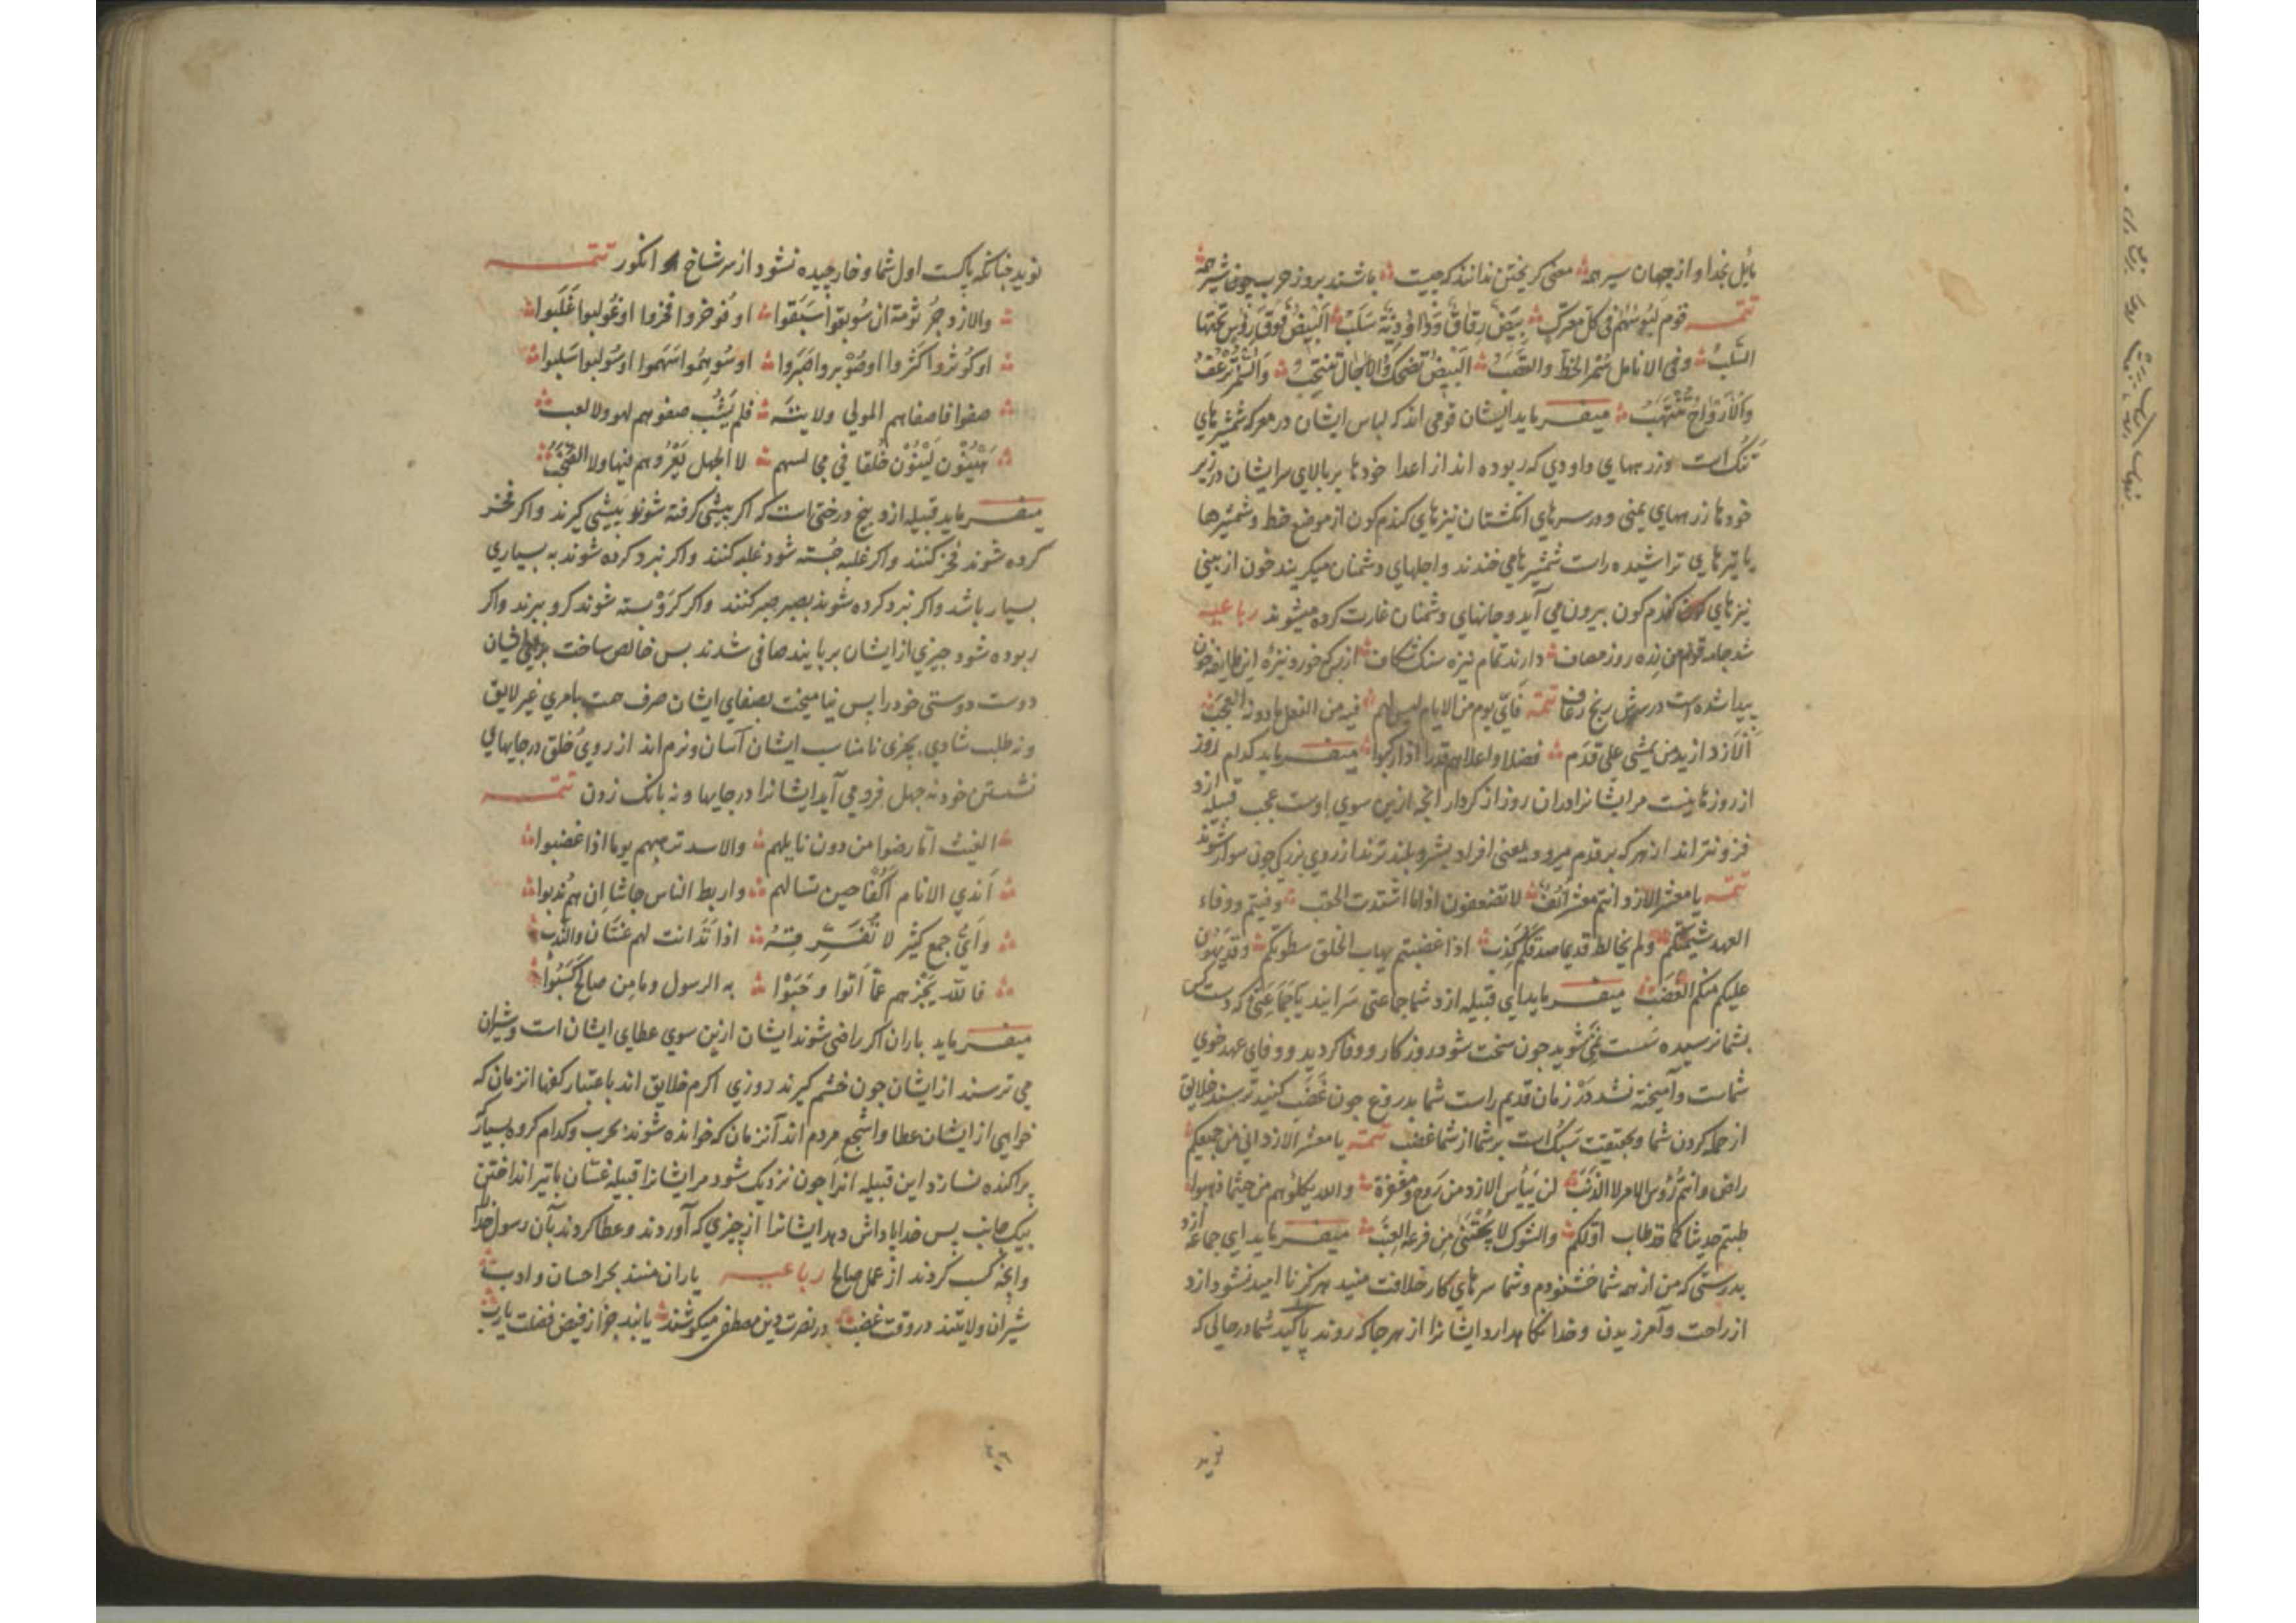 مایل بخدا و از جهان سیر همه معنی کریختن ندانند که چیست باشند بروز حرب چون شیر همه
تتمه قوم لبوسهم فی کل معترک بیض رقاق و داودیة سلب البیض فوق رؤس تحتها
الیلب و فی الانامل سمر الخط والقضب البیض تضحک والاجال تنتحب والسمر ترعف
والارواح تنتهب میفرماید ایشان قومی اند که لباس ایشان در معرکه شمشیرهای
تنک است وزرههای داودی که ربوده اند از اعدا خودها بر بالای سر ایشان در زیر
خودها زرههای یمنی و در سرهای انکشتان نیزهای کندم کون از موضع خط و شمشیرها
یا تیرهای تراشیده راست شمشیرها می خندند و اجلهای دشمنان میکریند خون از بینی
نیزهای کندم کون بیرون می آید و جانهای دشمنان غارت کرده میشوند رباعیه
شد جامه قوم من زره روز مصاف دارند تمام نیزه سنک شکاف از بس که خورد نیزه این طایفه خون
پیدا شده است در سرش رنج رعاف تتمه فای یوم من الایام لیس لهم فیه من الفعل ما دونه العجب
الازد ازید من یمشی علی قدم فضلا واعلاهم قدرا اذا رکبوا میفرماید کدام روز
از روزها نیست مر ایشانرا دران روز از کردار انچه ازین سوی اوست عجب قبیله ازد
فزونتر اند از هر که بر قدم میرود یعنی افراد بشر و بلند ترند از روی بزرکی چون سوار شوند
تتمه یا معشر الازد انتم معشر انف لا تضعفون اذا ما اشتدت الحقب وفیتم ووفاء
العهد شیمتکم ولم یخالط قدیما صدقکم کذب اذا غضبتم یهاب الخلق سطوتکم وقد یهون
علیکم منکم الغضب میفرماید ای قبیله ازد شما جماعتی سرانید یا جماعتی که دست کس
بشما نرسیده سست نمی شوید چون سخت شود روزکار و وفا کردید و وفای عهد خوی
شماست و آمیخته نشد در زمان قدیم راست شما بدروغ چون غضب کنید ترسند خلایق
از حمله کردن شما و بحقیقت سبک است بر شما از شما غضب تتمه یا معشر الازد انی من جمیعکم
راض وانتم رؤس الامر لا الذنب لن ییأس الازد من روح ومغفرة والله یکلؤهم من حیثما ذهبوا
طبتم حدیثا کما قد طاب اولکم والشوک لا یجتنی من فرعه العنب میفرماید ای جماعه ازد
بدرستی که من از همه شما خشنودم و شما سرهای کار خلافت منید هرکز نا امید نشود ازد
از راحت و آمرزیدن و خدا نکاهدارد ایشانرا از هر جا که روند پاکید شما در حالی که
نوید
نوید چنانکه پاکست اول شما و خار چیده نشود از سر شاخ او انکور تتمه
والازد جرثومة ان سوبقوا سبقوا او فوخروا فخروا او غولبوا غلبوا
او کوثروا کثروا او صوبروا صبروا او سوهموا سهموا او سولبوا سلبوا
صفوا فاصفاهم المولی ولایته فلم یشب صفوهم لهو ولا لعب
هینون لینون خلقا فی مجالسهم لا الجهل یعروهم فیها ولا الصخب
میفرماید قبیله ازد بیخ درختی است که اکر پیشی کرفته شوند پیشی کیرند و اکر فخر
کرده شوند فخر کنند و اکر غلبه جسته شود غلبه کنند و اکر نبرد کرده شوند به بسیاری
بسیار باشد و اکر نبرد کرده شوند بصبر صبر کنند و اکر کرو بسته شوند کرو ببرند و اکر
ربوده شود چیزی از ایشان بربایند صافی شدند پس خالص ساخت برای ایشان
دوست دوستی خود را پس نیامیخت بصفای ایشان صرف همت بامری غیر لایق
و نه طلب شادی بچیزی نامناسب ایشان آسان و نرم اند از روی خلق در جایهای
نشستن خود نه جهل فرو می آید ایشانرا در جایها و نه بانک زدن تتمه
الغیث اما رضوا من دون نایلهم والاسد ترهبهم یوما اذا غضبوا
اندی الانام اکفا حین تسالهم واربط الناس جاشا ان هم ندبوا
وای جمع کثیر لا تفرقه اذا تدانت لهم غسان والندب
فالله یجزهم عما اتوا وحبوا به الرسول وما من صالح کسبوا
میفرماید باران اکر راضی شوند ایشان ازین سوی عطای ایشان است و شیران
می ترسند از ایشان چون خشم کیرند روزی اکرم خلایق اند باعتبار کفها انزمان که
خواهی از ایشان عطا و اشجع مردم اند آنزمان که خوانده شوند بحرب و کدام کروه بسیار
پراکنده نسازد این قبیله انرا چون نزدیک شود مر ایشانرا قبیله غسان با تیر انداختن
بیک جانب پس خدا پاداش دهد ایشانرا از چیزی که آوردند و عطا کردند بآن رسول خدا
وانچه کسب کردند از عمل صالح رباعیه یاران منند بحر احسان و ادب
شیران ولایتند در وقت غضب در نصرت دین مصطفی میکوشند یابند جزا ز فیض فضلت یا رب